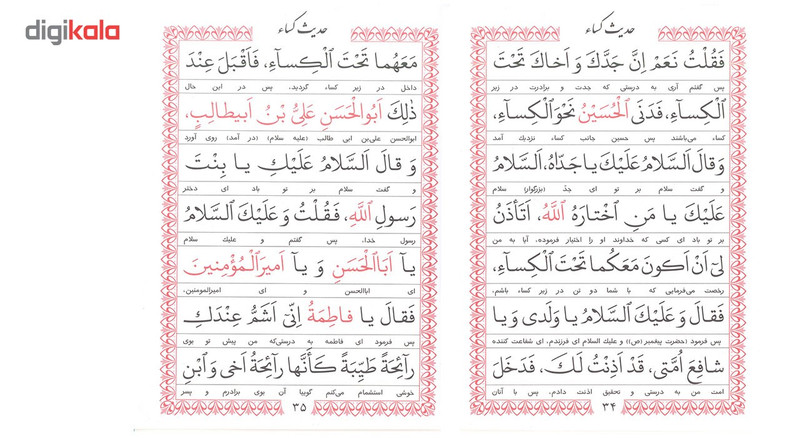 digikala
حدیث کساء
فَقُلْتُ نَعَمْ اِنَّ جَدَّكَ وَ اَخاكَ تَحْتَ
پس گفتم آری به درستی که جدت و برادرت در زیر
الْكِسآءِ، فَدَنَى الْحُسَيْنُ نَحْوَ الْكِسآءِ،
کساء می‌باشند پس حسین جانب کساء نزدیک آمد
وَ قالَ اَلسَّلامُ عَلَيْكَ يا جَدّاهُ، اَلسَّلامُ
و گفت سلام بر تو ای جدّ (بزرگوار) سلام
عَلَيْكَ يا مَنِ اخْتارَهُ اللّٰهُ، اَتَأْذَنُ
بر تو باد ای کسی که خداوند او را اختیار فرموده، آیا به من
لى اَنْ اَكُونَ مَعَكُما تَحْتَ الْكِسآءِ،
رخصت می‌فرمایی که با شما دو تن در زیر کساء باشم،
فَقالَ وَ عَلَيْكَ السَّلامُ يا وَلَدى وَ يا
پس فرمود (حضرت پیغمبر (ص)) و علیک السلام ای فرزندم، ای شفاعت کننده
شافِعَ اُمَّتى، قَدْ اَذِنْتُ لَكَ، فَدَخَلَ
امت من به درستی و تحقیق اذنت دادم، پس با آنان
۳۴
حدیث کساء
مَعَهُما تَحْتَ الْكِسآءِ، فَاَقْبَلَ عِنْدَ
داخل در زیر کساء گردید، پس در این حال
ذٰلِكَ اَبُو الْحَسَنِ عَلِىُّ بْنُ اَبيطالِبٍ،
ابوالحسن علی‌بن ابی طالب (علیه سلام) (در آمد) روی آورد
وَ قالَ اَلسَّلامُ عَلَيْكِ يا بِنْتَ
و گفت سلام بر تو باد ای دختر
رَسُولِ اللّٰهِ، فَقُلْتُ وَ عَلَيْكَ السَّلامُ
رسول خدا، پس گفتم و علیك سلام
يآ اَبَا الْحَسَنِ وَ يآ اَميرَ الْمُؤْمِنينَ
ای اباالحسن و ای امیرالمومنین،
فَقالَ يا فاطِمَةُ اِنّى اَشَمُّ عِنْدَكِ
پس فرمود ای فاطمه به درستی‌که من پیش تو بوی
رآئِحَةً طَيِّبَةً كَاَنَّها رآئِحَةُ اَخى وَ ابْنِ
خوشی استشمام می‌کنم گوییا آن بوی برادرم و پسر
۳۵